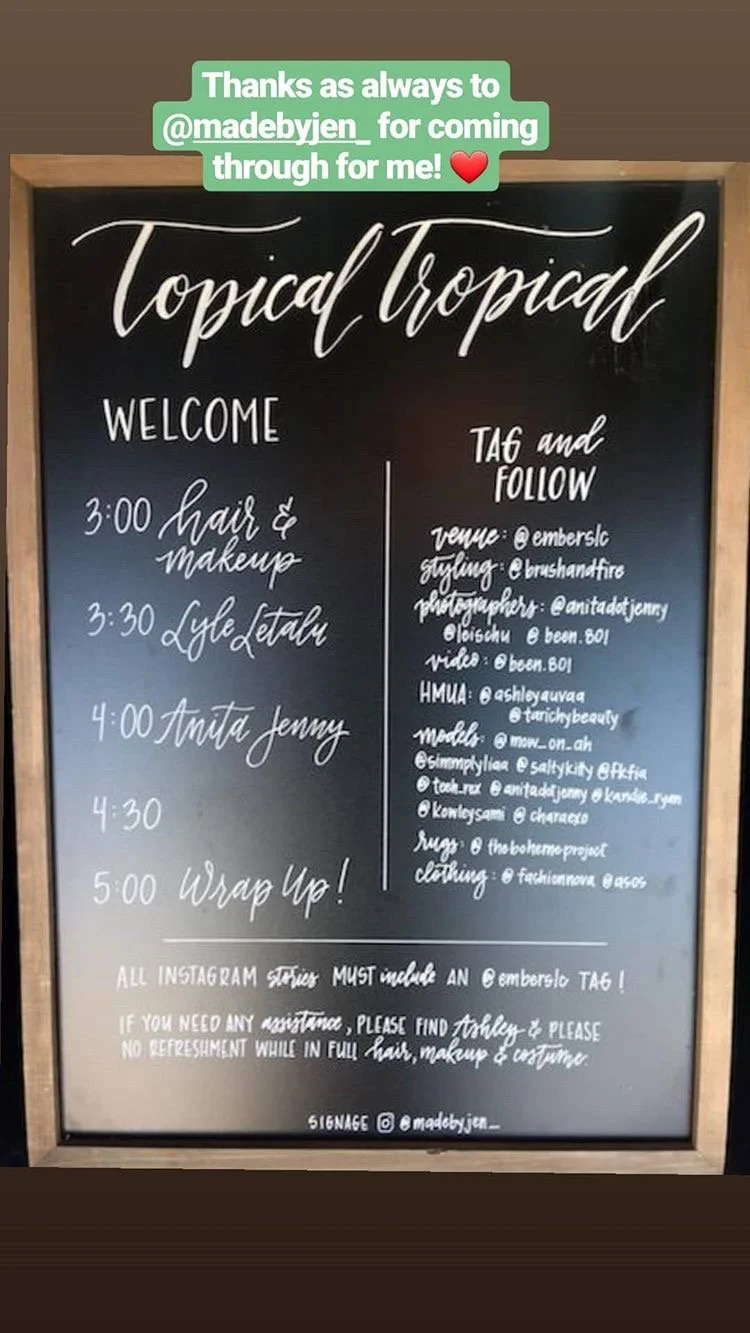 Thanks as always to
@madebyjen_ for coming
through for me! ❤️
Topical Tropical
WELCOME
3:00 hair &
makeup
3:30 Lyle Letalu
4:00 Anita Jenny
4:30
5:00 Wrap Up!
TAG and
FOLLOW
venue: @emberslc
styling: @brushandfire
photographers: @anitadotjenny
@leischu @been.801
video: @been.801
HMUA: @ashleyauvaa
@tarichybeauty
models: @mow_on_ah
@simmplyliaa @saltykitty @fkfia
@teeh_rex @anitadotjenny @kandie_ryan
@kowleysami @charaexo
rugs: @thebohemeproject
clothing: @fashionnova @asos
ALL INSTAGRAM stories MUST include AN @emberslc TAG!
IF YOU NEED ANY assistance, PLEASE FIND Ashley & PLEASE
NO REFRESHMENT WHILE IN FULL hair, makeup & costume.
SIGNAGE @madebyjen_